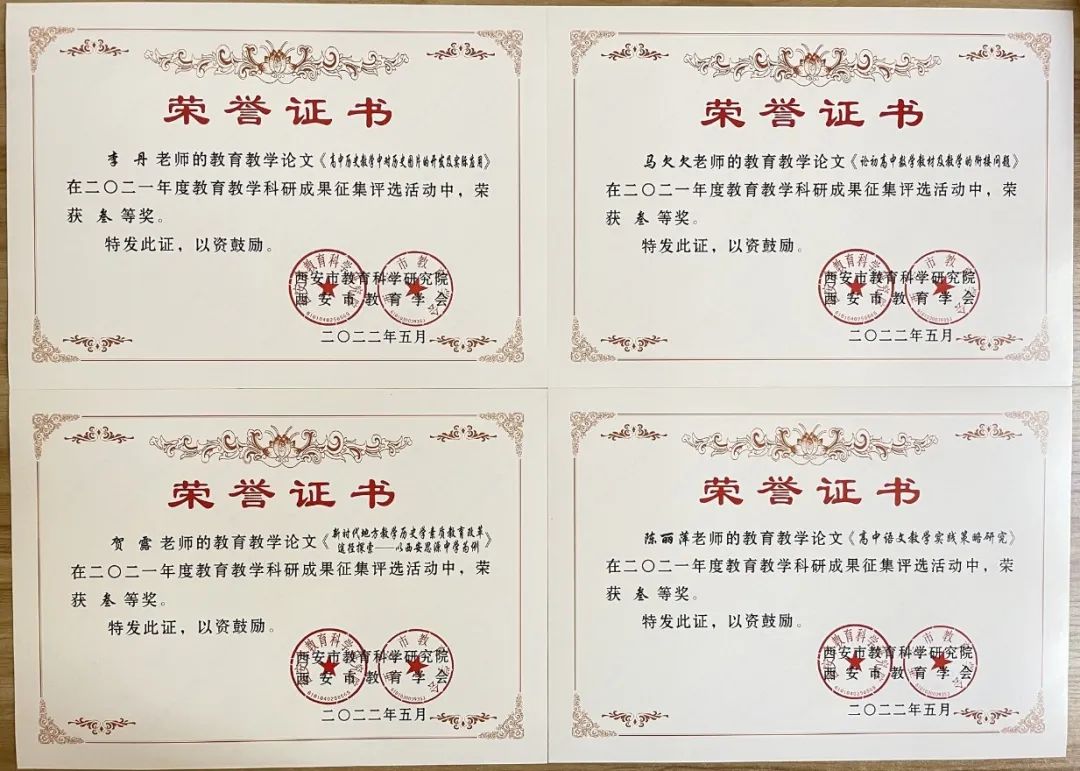 荣誉证书
李 丹 老师的教育教学论文《高中历史教学中对历史图片的开发及实际应用》
在二〇二一年度教育教学科研成果征集评选活动中，荣
获 叁 等奖。
特发此证，以资鼓励。
西安市教育科学研究院
西安市教育学会
二〇二二年五月
荣誉证书
马欠欠老师的教育教学论文《论初高中数学教材及教学的衔接问题》
在二〇二一年度教育教学科研成果征集评选活动中，荣
获 叁 等奖。
特发此证，以资鼓励。
西安市教育科学研究院
西安市教育学会
二〇二二年五月
荣誉证书
贺 露 老师的教育教学论文《新时代地方教学历史学素质教育改革
途径探索——以西安思源中学为例》
在二〇二一年度教育教学科研成果征集评选活动中，荣
获 叁 等奖。
特发此证，以资鼓励。
西安市教育科学研究院
西安市教育学会
二〇二二年五月
荣誉证书
陈丽萍老师的教育教学论文《高中语文教学实践策略研究》
在二〇二一年度教育教学科研成果征集评选活动中，荣
获 叁 等奖。
特发此证，以资鼓励。
西安市教育科学研究院
西安市教育学会
二〇二二年五月